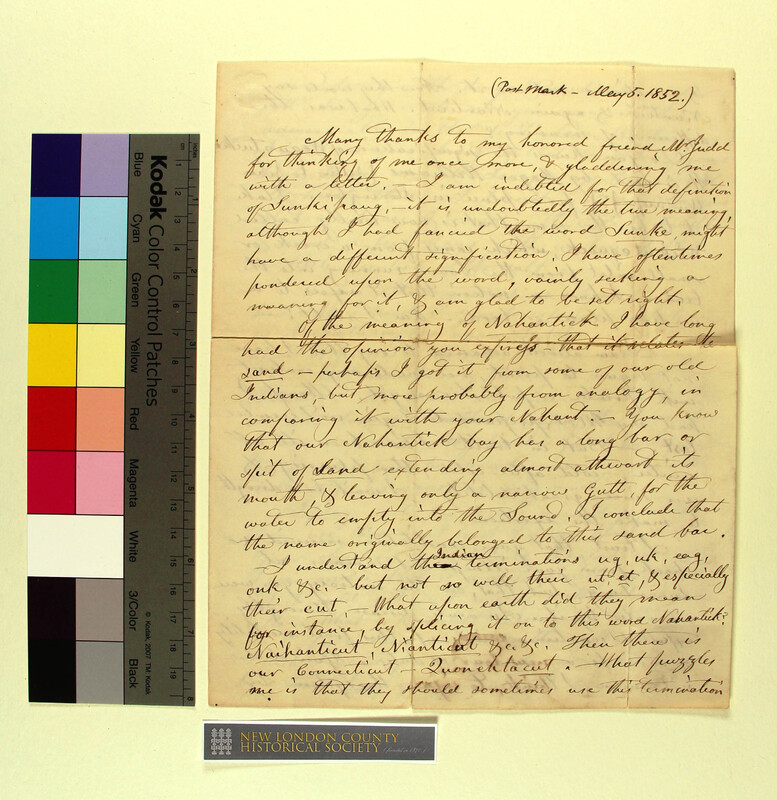 (Post Mark – May 5. 1852.)
Many thanks to my honored friend Mr Judd
for thinking of me once more, & gladdening me
with a letter. – I am indebted for that definition
of Sunkipaug, – it is undoubtedly the true meaning,
although I had fancied the word Sunke, might
have a different signification. I have oftentimes
pondered upon the word, vainly seeking a
meaning for it, & am glad to be set right.
Of the meaning of Nahantick I have long
had the opinion you express – that it relates to
sand – perhaps I got it from some of our old
Indians, but more probably from analogy, in
comparing it with your Nahant. – You know
that our Nahantick bay has a long bar or
spit of sand extending almost athwart its
mouth, & leaving only a narrow Gutt, for the
water to empty into the Sound. I conclude that
the name originally belonged to this sand bar.
– I understand the Indian terminations ug, uk, eag,
onk &c. but not so well their ut, et, & especially
their cut, – What upon earth did they mean
for instance, by splicing it on to this word Nahantick:
Naihanticut, Nianticut &c. &c. Then there is
our Connecticut – Quonehtacut. – What puzzles
me is that they should sometimes use this termination
Kodak Color Control Patches
Blue
Cyan
Green
Yellow
Red
Magenta
White
3/Color
Black
© Kodak, 2007 TM: Kodak
NEW LONDON COUNTY
HISTORICAL SOCIETY